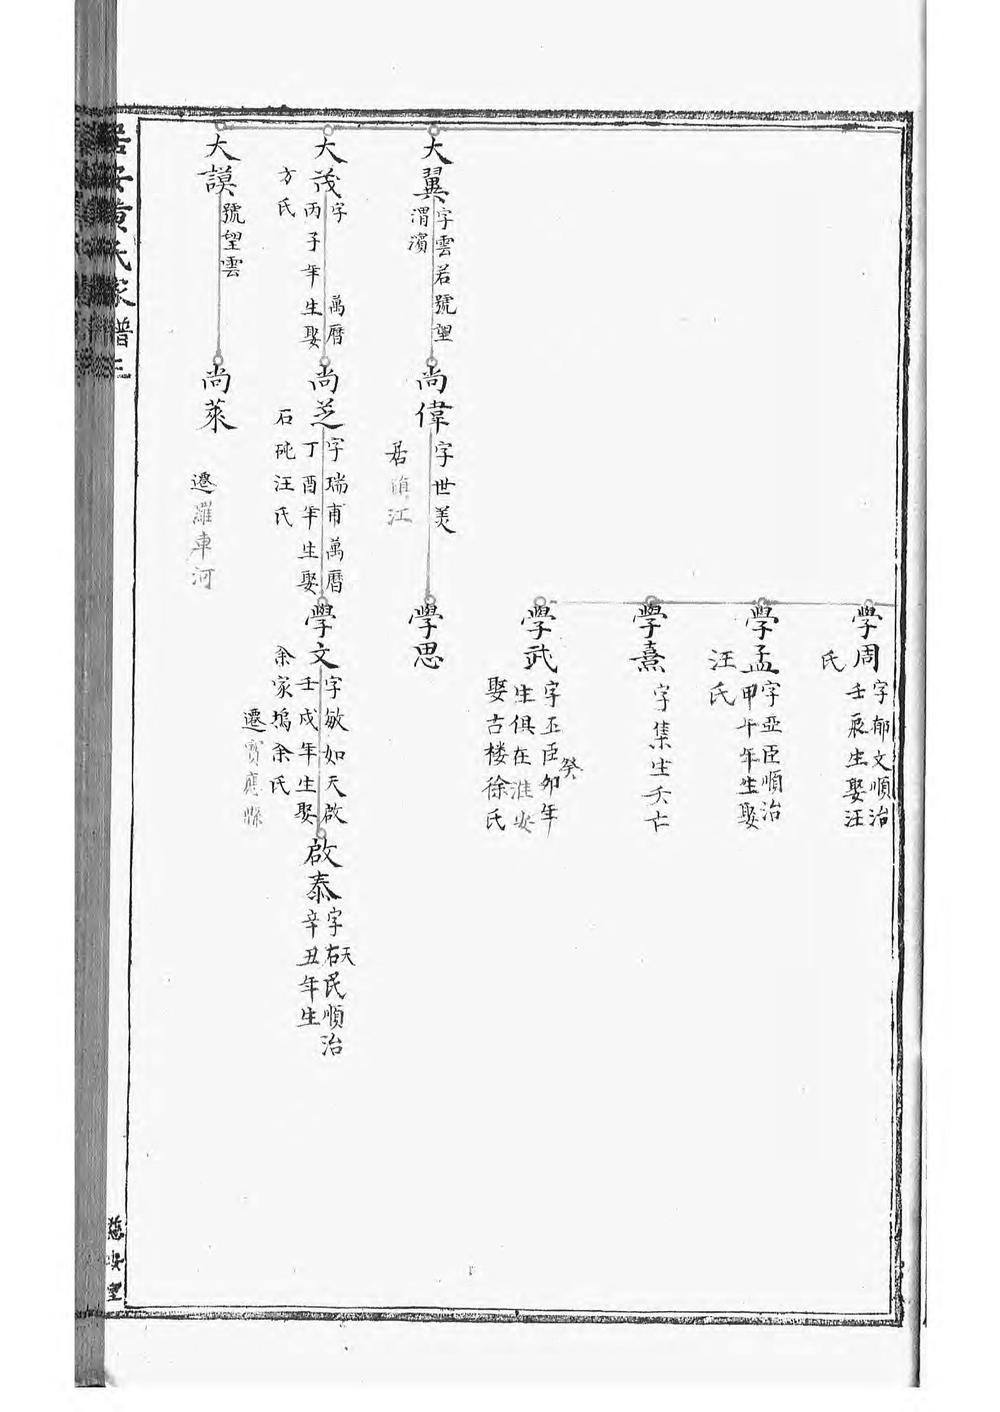 大翼
字雲若號望
渭濱
大茂
字 萬曆
丙子年生娶
方氏
大謨
號望雲
尚偉
字世美
居 江
尚芝
字瑞甫萬曆
丁酉年生娶
石砘汪氏
尚萊
遷羅車河
學周
字郁文順治
壬辰生娶汪
氏
學孟
字亞臣順治
甲午年生娶
汪氏
學熹
字集生夭亡
學武
字丕臣卯年
癸
生俱在淮安
娶古楼徐氏
學思
學文
字敏如天啟
壬戌年生娶
余家塢余氏
遷寶應縣
啟泰
字右民順治
天
辛丑年生
居安黃氏家譜三
慈安